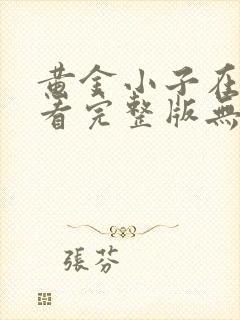 黄金小子在
看完整版無
張芬